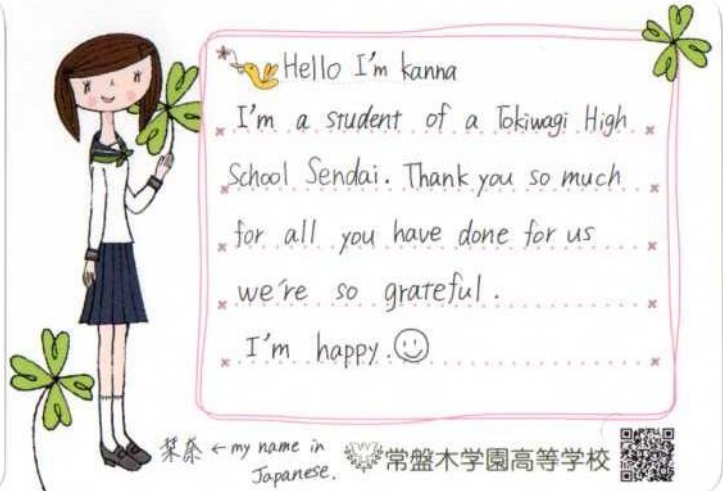 Hello I'm kanna
I'm a student of a Tokiwagi High
School Sendai. Thank you so much
for all you have done for us
we're so grateful.
I'm happy.
栞奈 ←my name in
Japanese.
常盤木学園高等学校